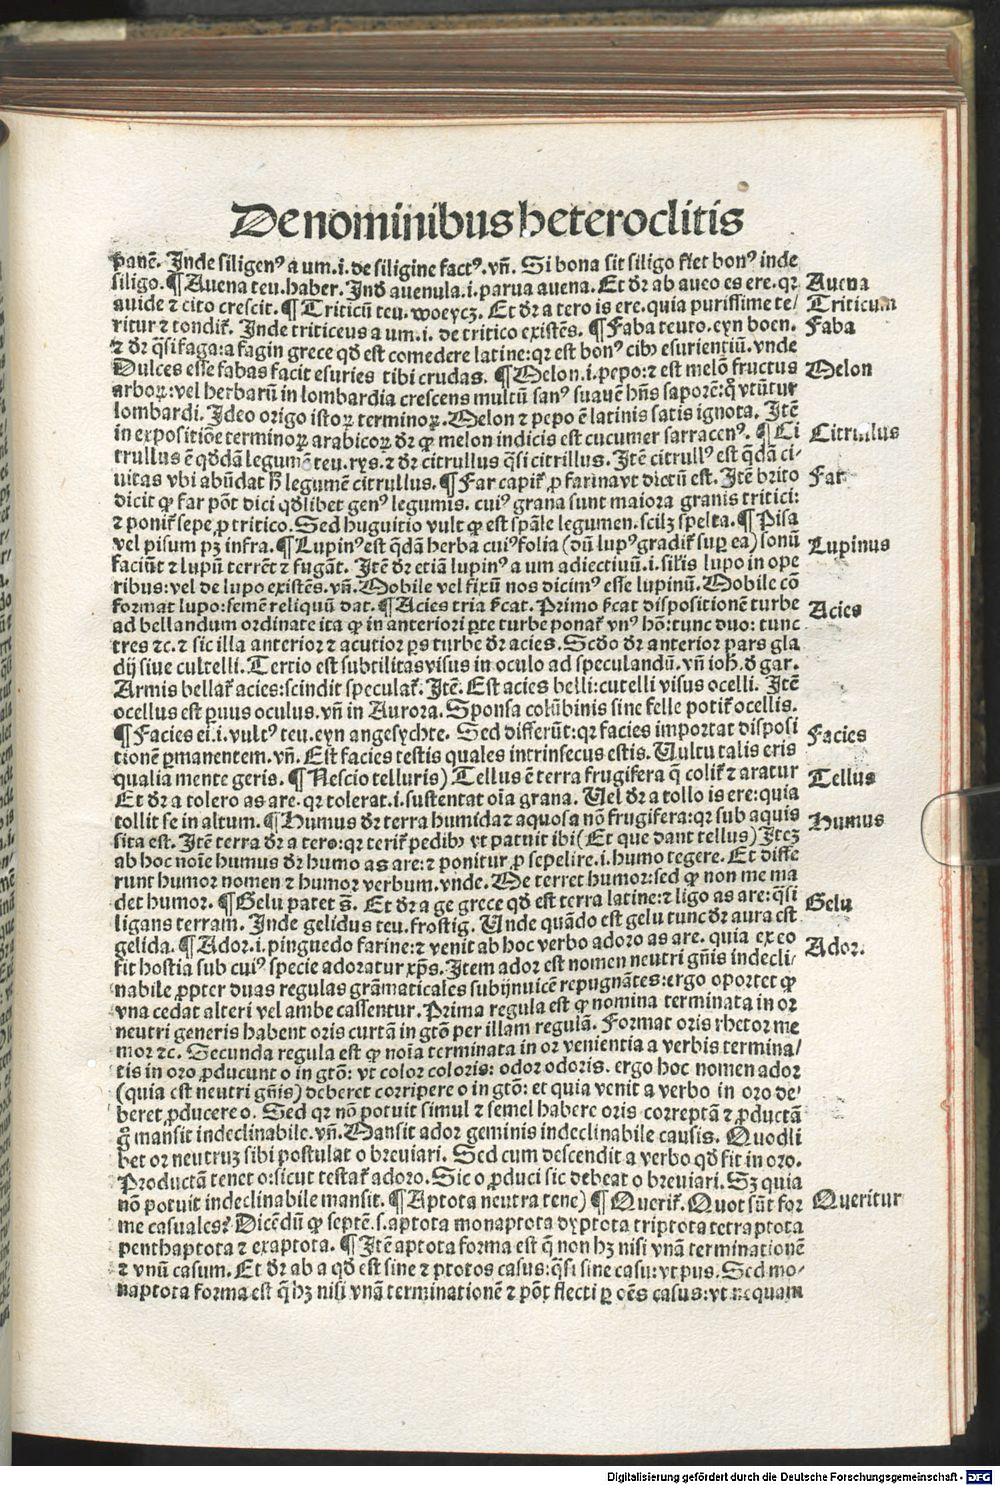 De nominibus heteroclitis
panē. Inde siligenꝰ a um .i. de siligine factꝰ. vñ. Si bona sit siligo fiet bonꝰ inde
siligo. ¶ Auena teu. haber. Inđ auenula .i. parua auena. Et đr ab aueo es ere. qꝛ
Auena
auide ⁊ cito crescit. ¶ Triticū teu. woeycz. Et đr a tero is ere. quia purissime te/
Triticum
ritur ⁊ tondit̄. Inde triticeus a um .i. de tritico existēs. ¶ Faba teuto. eyn boen.
Faba
⁊ đr q̄si faga: a fagin grece qđ est comedere latine: qꝛ est bonꝰ cibꝰ esurientiū. vnde
Dulces esse fabas facit esuries tibi crudas. ¶ Melon .i. pepo: ⁊ est melō fructus
Melon
arboꝝ: vel herbarū in lombardia crescens multū sanꝰ suauē hn̄s saporē: q̄ vtūtur
lombardi. Ideo origo istoꝝ terminoꝝ. Melon ⁊ pepo ē latinis satis ignota. Itē
in expositiōe terminoꝝ arabicoꝝ đr ꝙ melon indicis est cucumer sarracenꝰ. ¶ Ci
Citrullus
trullus ē qđdā legumē teu. rys. ⁊ đr citrullus q̄si citrillus. Itē citrullꝰ est q̄dā ci/
uitas vbi abūdat ħ legumē citrullus. ¶ Far capit̄ ꝓ farina vt dictū est. Itē brito
Far
dicit ꝙ far pōt dici qđlibet genꝰ legumis. cuiꝰ grana sunt maiora granis tritici:
⁊ ponit̄ sepe ꝓ tritico. Sed huguitio vult ꝙ est spāle legumen. scilꝫ spelta. ¶ Pisa
vel pisum pꝫ infra. ¶ Lupinꝰ est q̄dā herba cuiꝰ folia (dū lupꝰ gradit̄ suꝑ ea) sonū
Lupinus
faciūt ⁊ lupū terrēt ⁊ fugāt. Itē đr etiā lupinꝰ a um adiectiuū .i. sil̄is lupo in ope
ribus: vel de lupo existēs. vñ. Mobile vel fixū nos dicimꝰ esse lupinū. Mobile cō
format lupo: semē reliquū dat. ¶ Acies tria s̄cat. Primo s̄cat dispositionē turbe
Acies
ad bellandum ordinate ita ꝙ in anteriori ꝑte turbe ponat̄ vnꝰ hō: tunc duo: tunc
tres ⁊c. ⁊ sic illa anterior ⁊ acutior ꝑs turbe đr acies. Scđo đr anterior pars gla
dij siue cultelli. Tertio est subtilitas visus in oculo ad speculandū. vñ ioh̄. đ gar.
Armis bellat̄ acies: scindit speculat̄. Itē. Est acies belli: cutelli visus ocelli. Itē
ocellus est ꝑuus oculus. vñ in Aurora. Sponsa colūbinis sine felle potit̄ ocellis.
¶ Facies ei .i. vultꝰ teu. eyn angesychte. Sed differūt: qꝛ facies importat disposi
Facies
tionē ꝑmanentem. vñ. Est facies testis quales intrinsecus estis. Vultu talis eris
qualia mente geris. ¶ Nescio telluris) Tellus ē terra frugifera q̄ colit̄ ⁊ aratur
Tellus
Et đr a tolero as are. qꝛ tolerat .i. sustentat oīa grana. Uel đr a tollo is ere: quia
tollit se in altum. ¶ Humus đr terra humida ⁊ aquosa nō frugifera: qꝛ sub aquis
Humus
sita est. Itē terra đr a tero: qꝛ terit̄ pedibꝰ vt patuit ibi (Et que dant tellus) Iteꝫ
ab hoc noīe humus đr humo as are: ⁊ ponitur ꝓ sepelire .i. humo tegere. Et diffe
runt humor nomen ⁊ humor verbum. vnde. Me terret humor: sed ꝙ non me ma
det humor. ¶ Gelu patet s̄. Et đr a ge grece qđ est terra latine: ⁊ ligo as are: q̄si
Gelu
ligans terram. Inde gelidus teu. frostig. Unde quādo est gelu tunc đr aura est
gelida. ¶ Ador .i. pinguedo farine: ⁊ venit ab hoc verbo adoro as are. quia ex eo
Ador.
fit hostia sub cuiꝰ specie adoratur xp̄s. Item ador est nomen neutri gn̄is indecli/
nabile ꝓpter duas regulas grāmaticales subijnuicē repugnātes: ergo oportet ꝙ
vna cedat alteri vel ambe cassentur. Prima regula est ꝙ nomina terminata in or
neutri generis habent oris curtā in gtō per illam regulā. Format oris rhetor me
mor ⁊c. Secunda regula est ꝙ noīa terminata in or venientia a verbis termina/
tis in oro ꝓducunt o in gtō: vt color coloris: odor odoris. ergo hoc nomen ador
(quia est neutri gn̄is) deberet corripere o in gtō: et quia venit a verbo in oro de/
beret ꝓducere o. Sed qꝛ nō potuit simul ⁊ semel habere oris correptā ⁊ ꝓductā
g̊ mansit indeclinabile. vñ. Mansit ador geminis indeclinabile causis. Quodli
bet or neutruꝫ sibi postulat o breuiari. Sed cum descendit a verbo qđ fit in oro.
Productā tenet o: sicut testat̄ adoro. Sic o ꝓduci sic debeat o breuiari. Sꝫ quia
nō potuit indeclinabile mansit. ¶ Aptota neutra tene) ¶ Querit̄. Quot sūt for
Queritur
me casuales? Dicēdū ꝙ septē .s. aptota monaptota dyptota triptota tetraptota
penthaptota ⁊ exaptota. ¶ Itē aptota forma est q̄ non hꝫ nisi vnā terminationē
⁊ vnū casum. Et đr ab a qđ est sine ⁊ ptotos casus: q̄si sine casu: vt pus. Sed mo/
naptota forma est q̄ hꝫ nisi vnā terminationē ⁊ pōt flecti ꝑ oēs casus: vt nequam
Digitalisierung gefördert durch die Deutsche Forschungsgemeinschaft - DFG